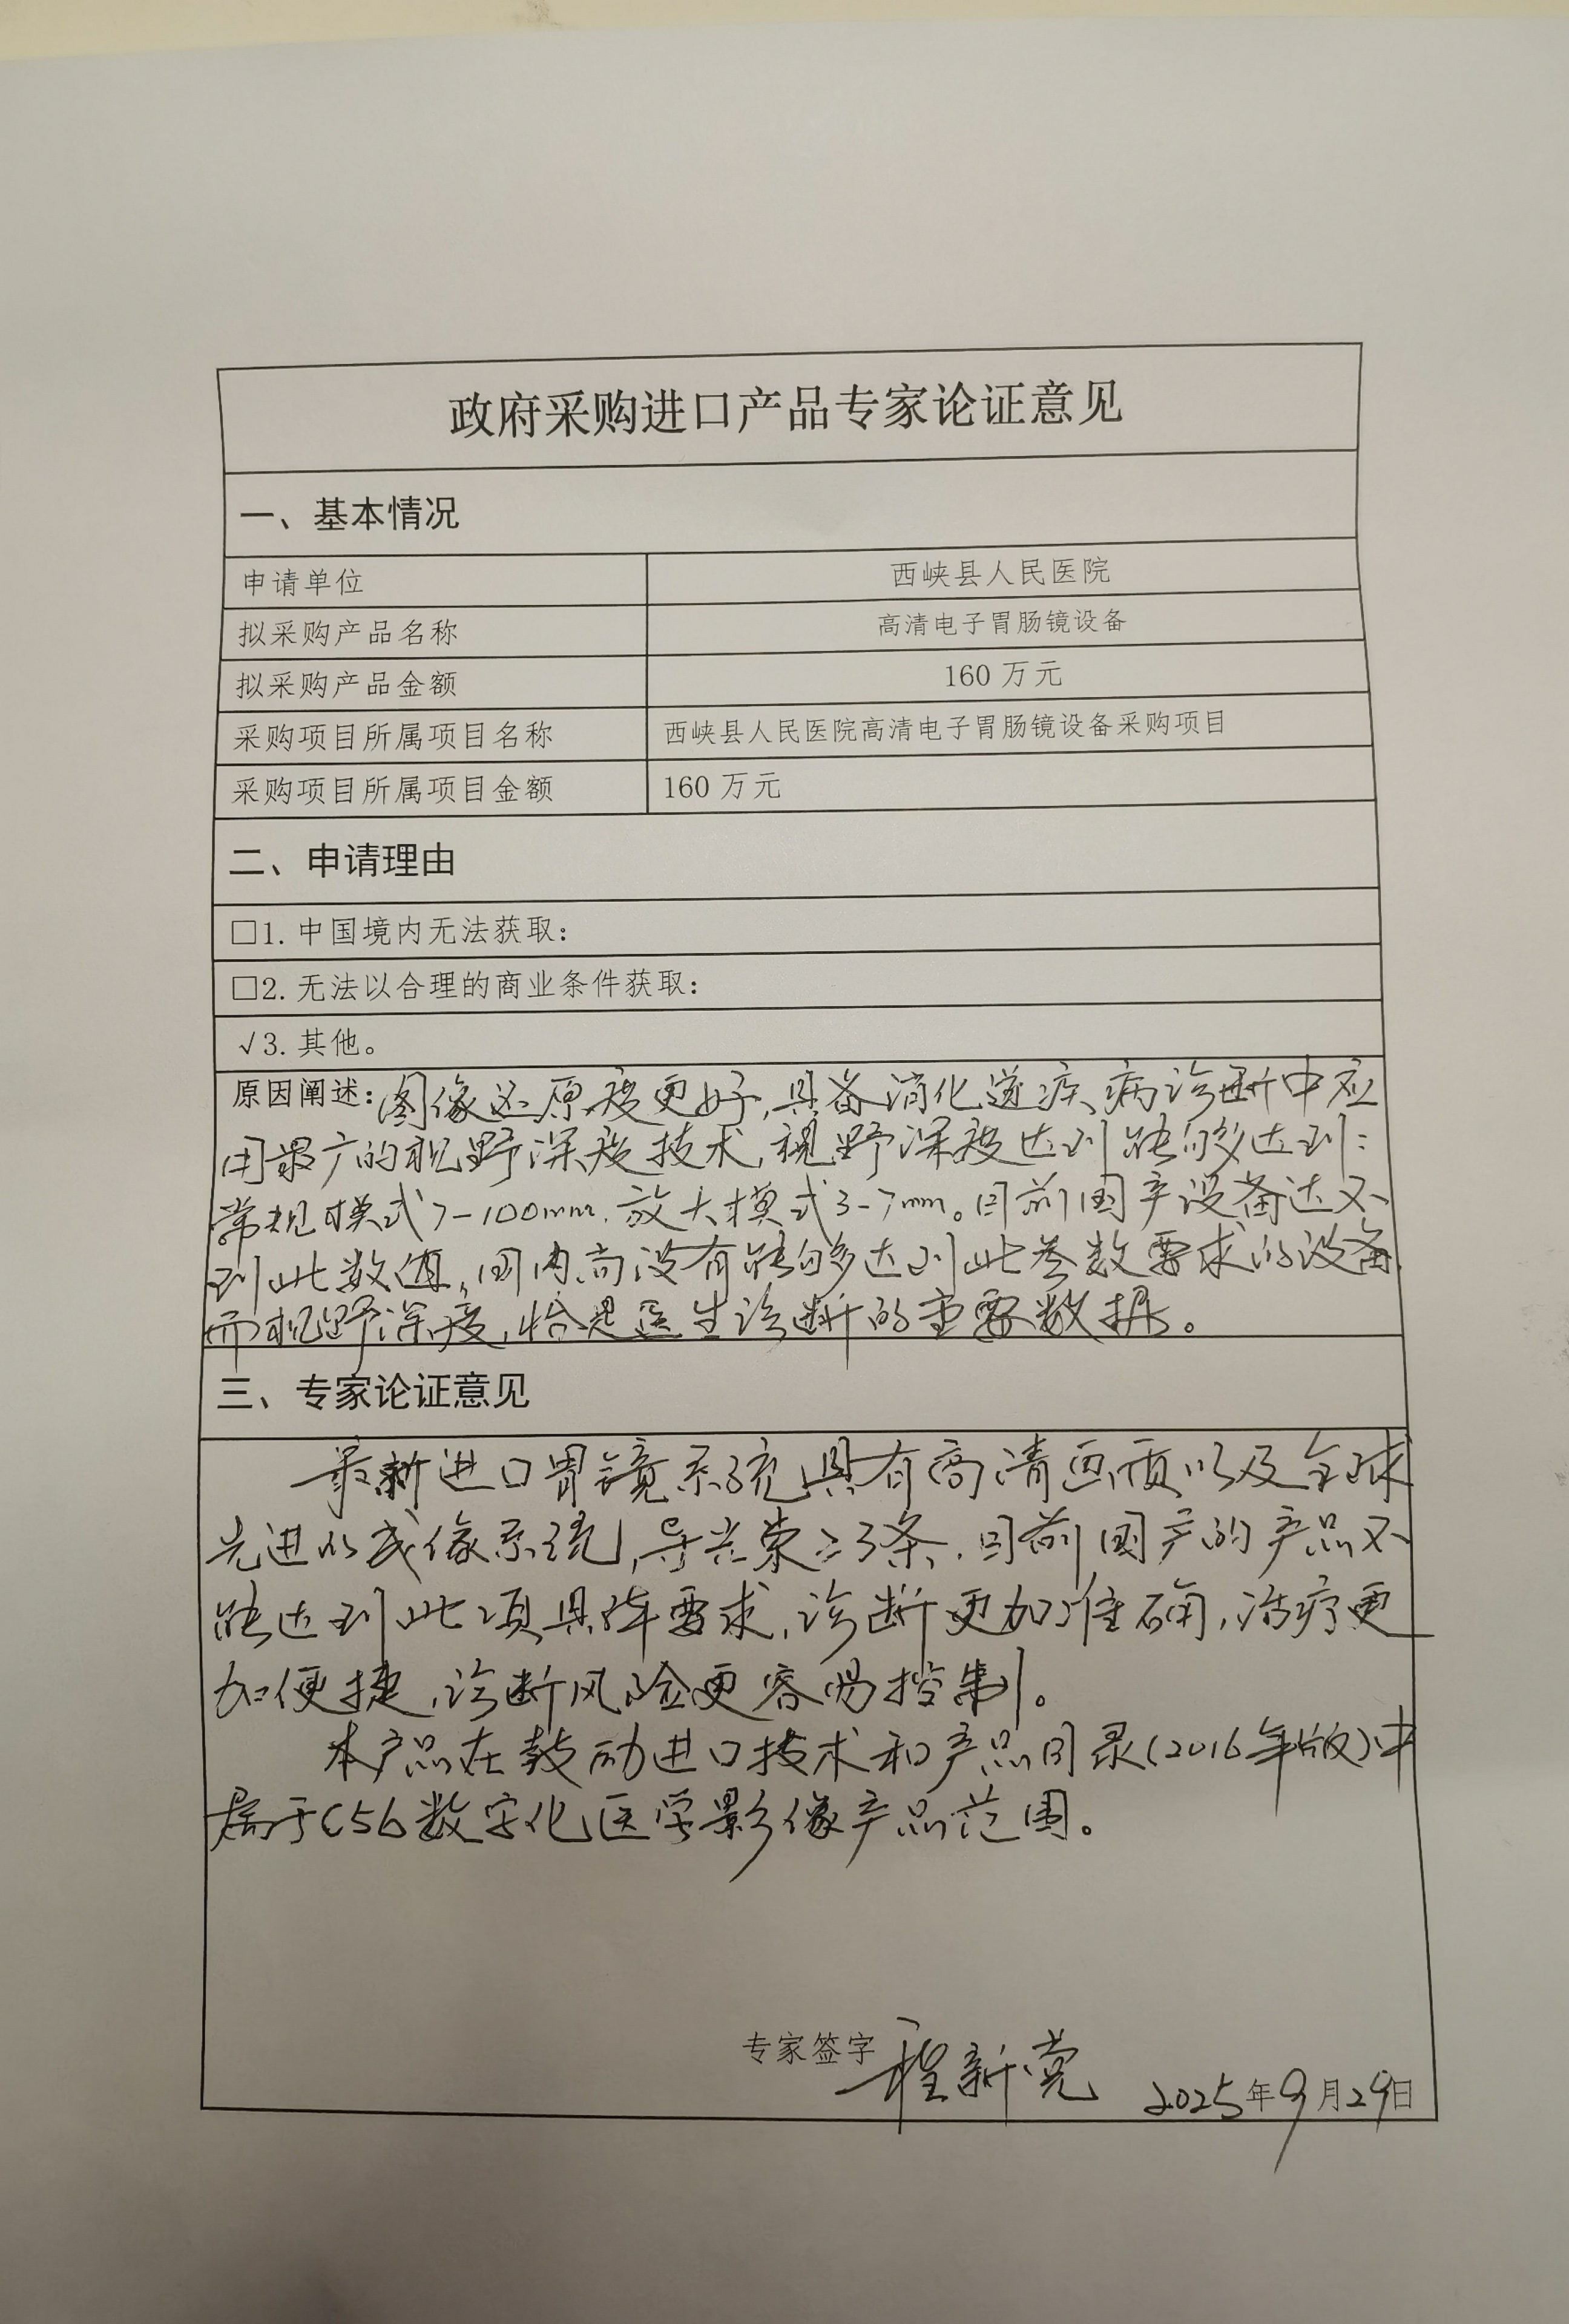 政府采购进口产品专家论证意见
一、基本情况
申请单位 西峡县人民医院
拟采购产品名称 高清电子胃肠镜设备
拟采购产品金额 160 万元
采购项目所属项目名称 西峡县人民医院高清电子胃肠镜设备采购项目
采购项目所属项目金额 160 万元
二、申请理由
□1. 中国境内无法获取：
□2. 无法以合理的商业条件获取：
√3. 其他。
原因阐述：图像还原度更好，具备消化道疾病诊断中应
用最广的视野深度技术，视野深度达到能够达到：
常规模式7-100mm，放大模式3-7mm。目前国产设备达不
到此数值，国内尚没有能够达到此参数要求的设备，
而视野深度，恰是医生诊断的重要数据。
三、专家论证意见
最新进口胃镜系统具有高清画质以及全球
先进的成像系统，导光束≥3条，目前国产的产品不
能达到此项具体要求，诊断更加准确，治疗更
加便捷，诊断风险更容易控制。
本产品在鼓励进口技术和产品目录(2016年版)中
属于C56数字化医学影像产品范围。
专家签字 程新党
2025年9月29日